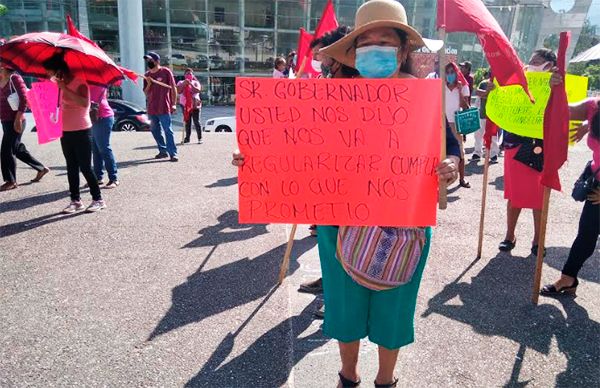 SR. GOBERNADOR
USTED NOS DIJO
QUE NOS VA A
REGULARIZAR CUMPLA
CON LO QUE NOS
PROMETIO